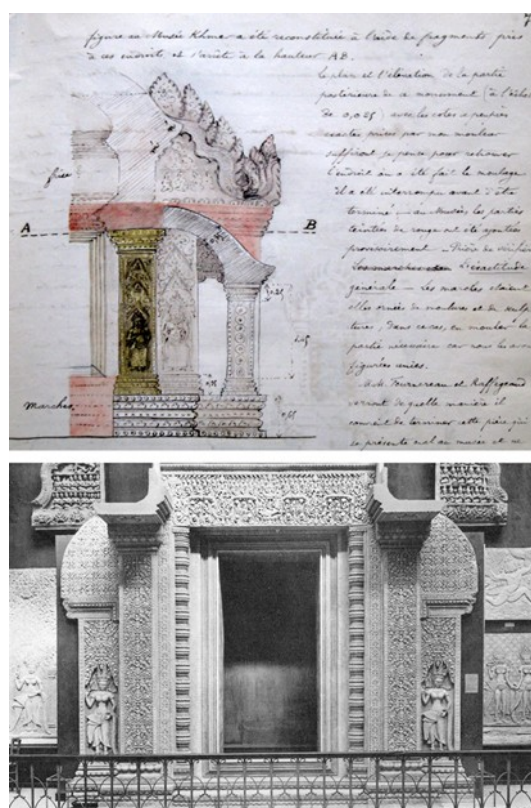 figure au Musée Khmer a été reconstituée à l'aide de fragments, pris
à ces endroits et s'arrête à la hauteur AB.
le plan et l'élévation de la partie
postérieure de ce monument (à l'échelle
de 0,025) avec les cotes à peu près
exactes prises par mon mouleur
suffiront je pense pour retrouver
l'endroit où a été fait le moulage
il a été interrompu avant d'être
terminé — au Musée, les parties
teintées de rouge ont été ajoutées
provisoirement
frise
A
B
générale — Les marches étaient
elles ornées de moulures et de sculp
tures, dans ce cas, en mouler la
partie nécessaire car nous les avons
figurées unies.
Marches
M.M. Fournereau et Raffegeaud
verront de quelle manière il
convient de terminer cette pièce qui
se présente mal au musée et ne